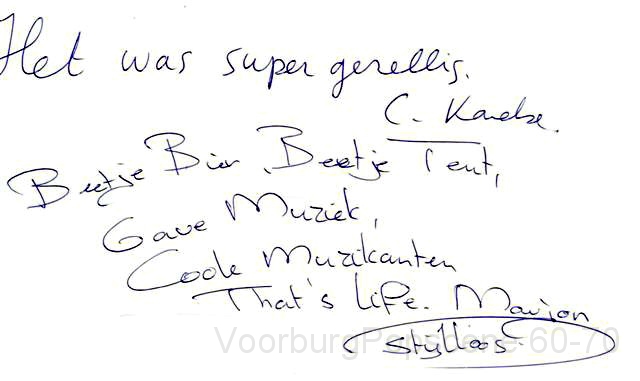 Het was super gezellig.
C.
Beetje Bier, Beetje Tent,
Gave Muziek,
Coole Muzikanten
That's Life. Marion
Stylloos.
VoorburgPopscene 60-70